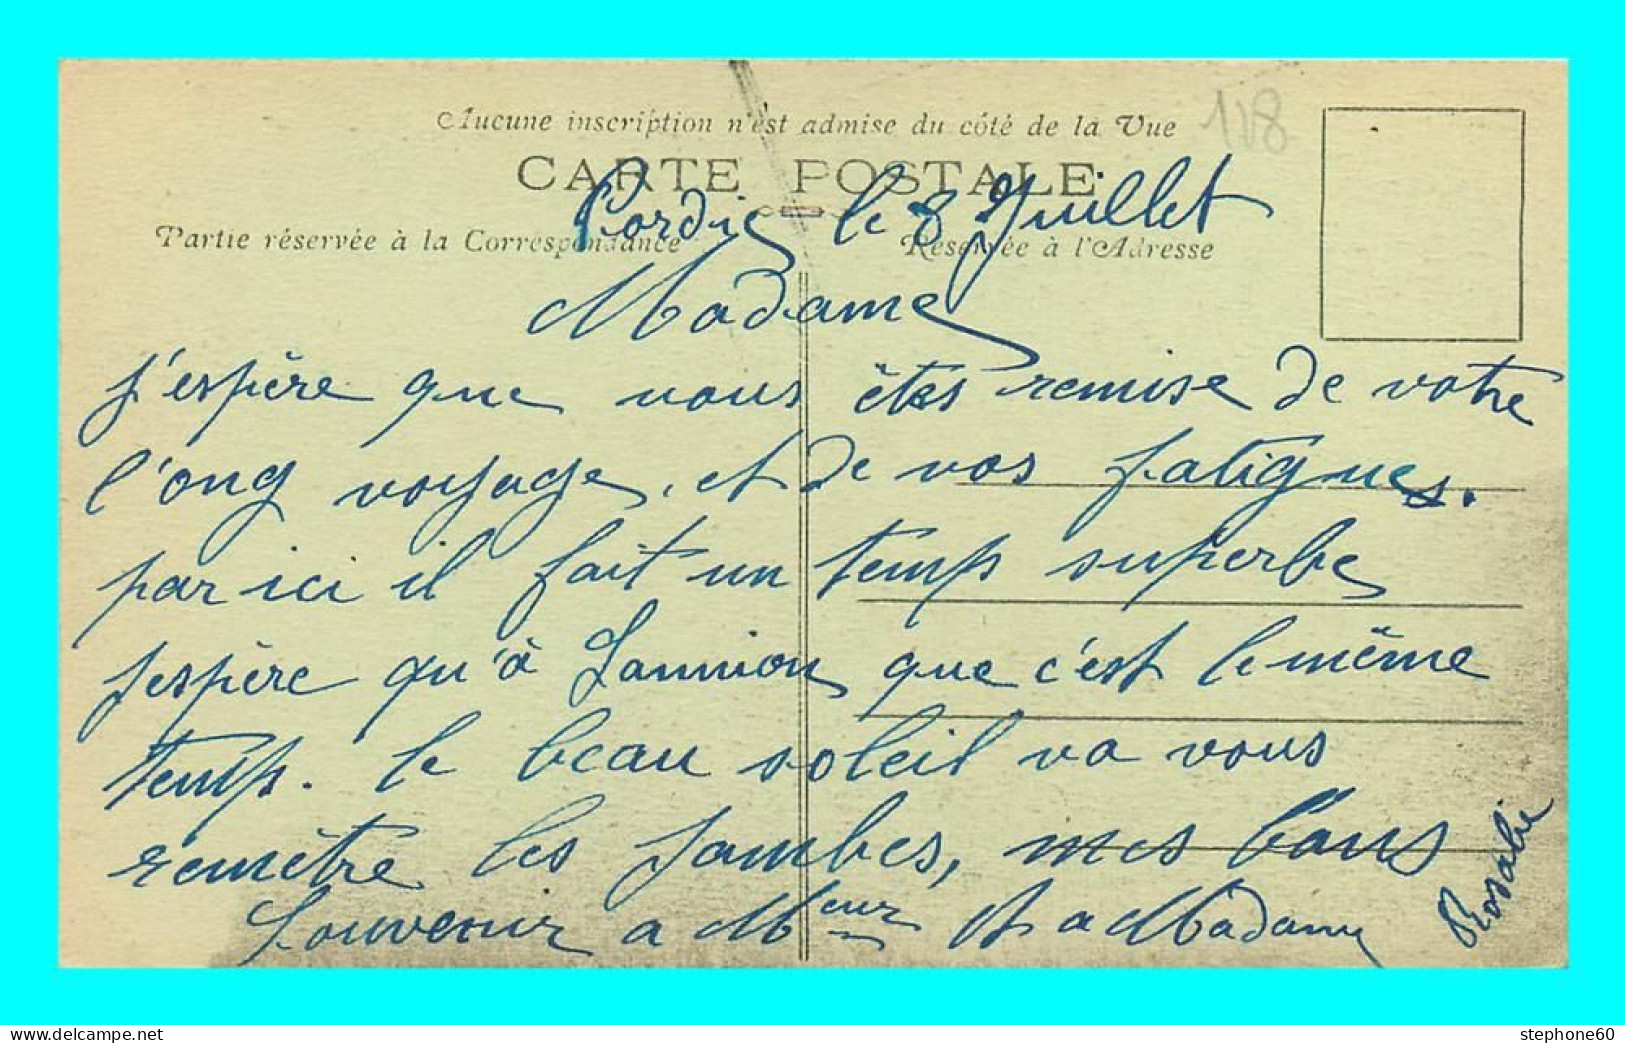 118
Aucune inscription n'est admise du côté de la Vue
CARTE POSTALE
Partie réservée à la Correspondance
Réservée à l'Adresse
Pordic le 8 Juillet
Madame
j'espère que vous êtes remise de votre
l'ong voyage, et de vos fatigues.
par ici il fait un temps superbe
j'espère qu'à Lannion que c'est le même
temps. le beau soleil va vous
remêtre les jambes, mes bons
Souvenir a Meur et a Madame
Rosalie
stephone60